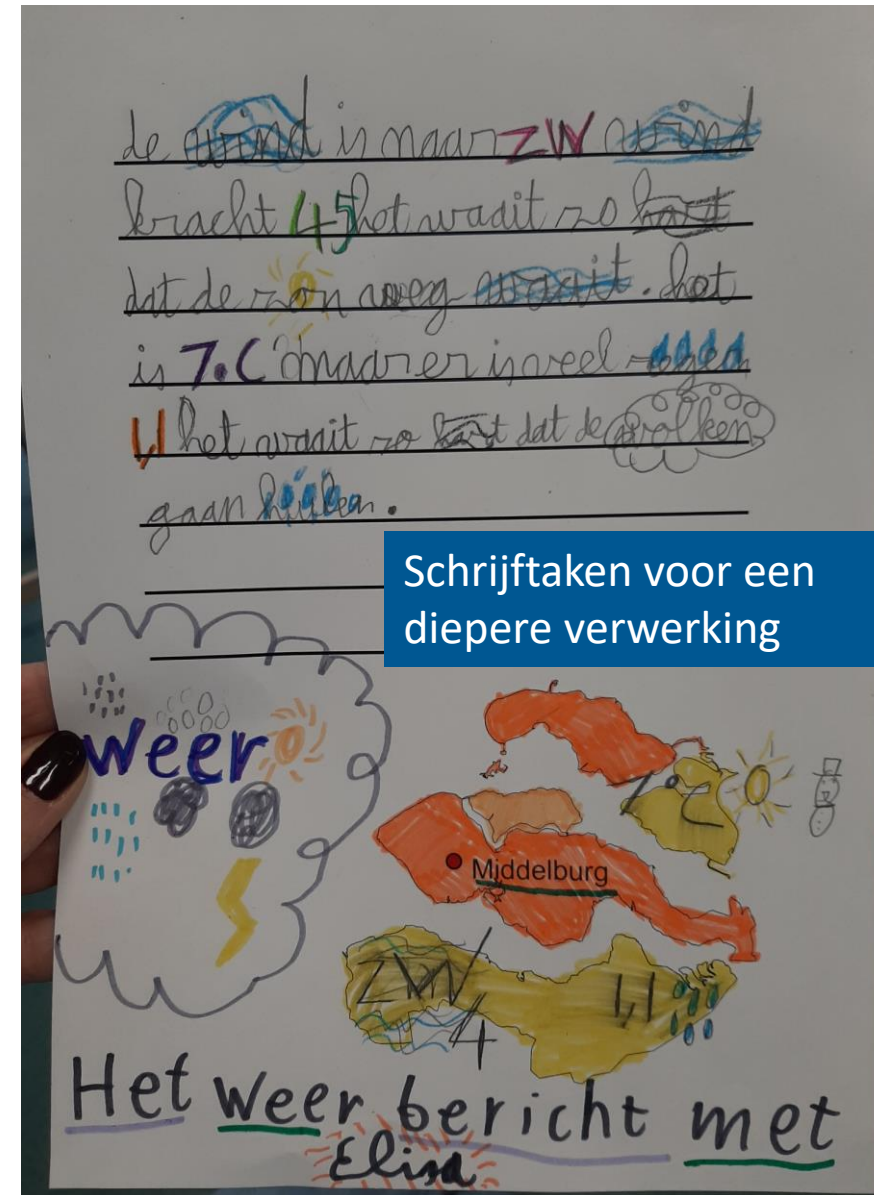 de wind is naar ZW wind
kracht 45 het waait zo hart
dat de zon weg waait. het
is 7.C maar er is veel regen
1,1 het waait zo hart dat de wolken
gaan huilen.
Schrijftaken voor een
diepere verwerking
weer
7°C
Middelburg
ZW
4
1,1
Het weer bericht met
Elisa